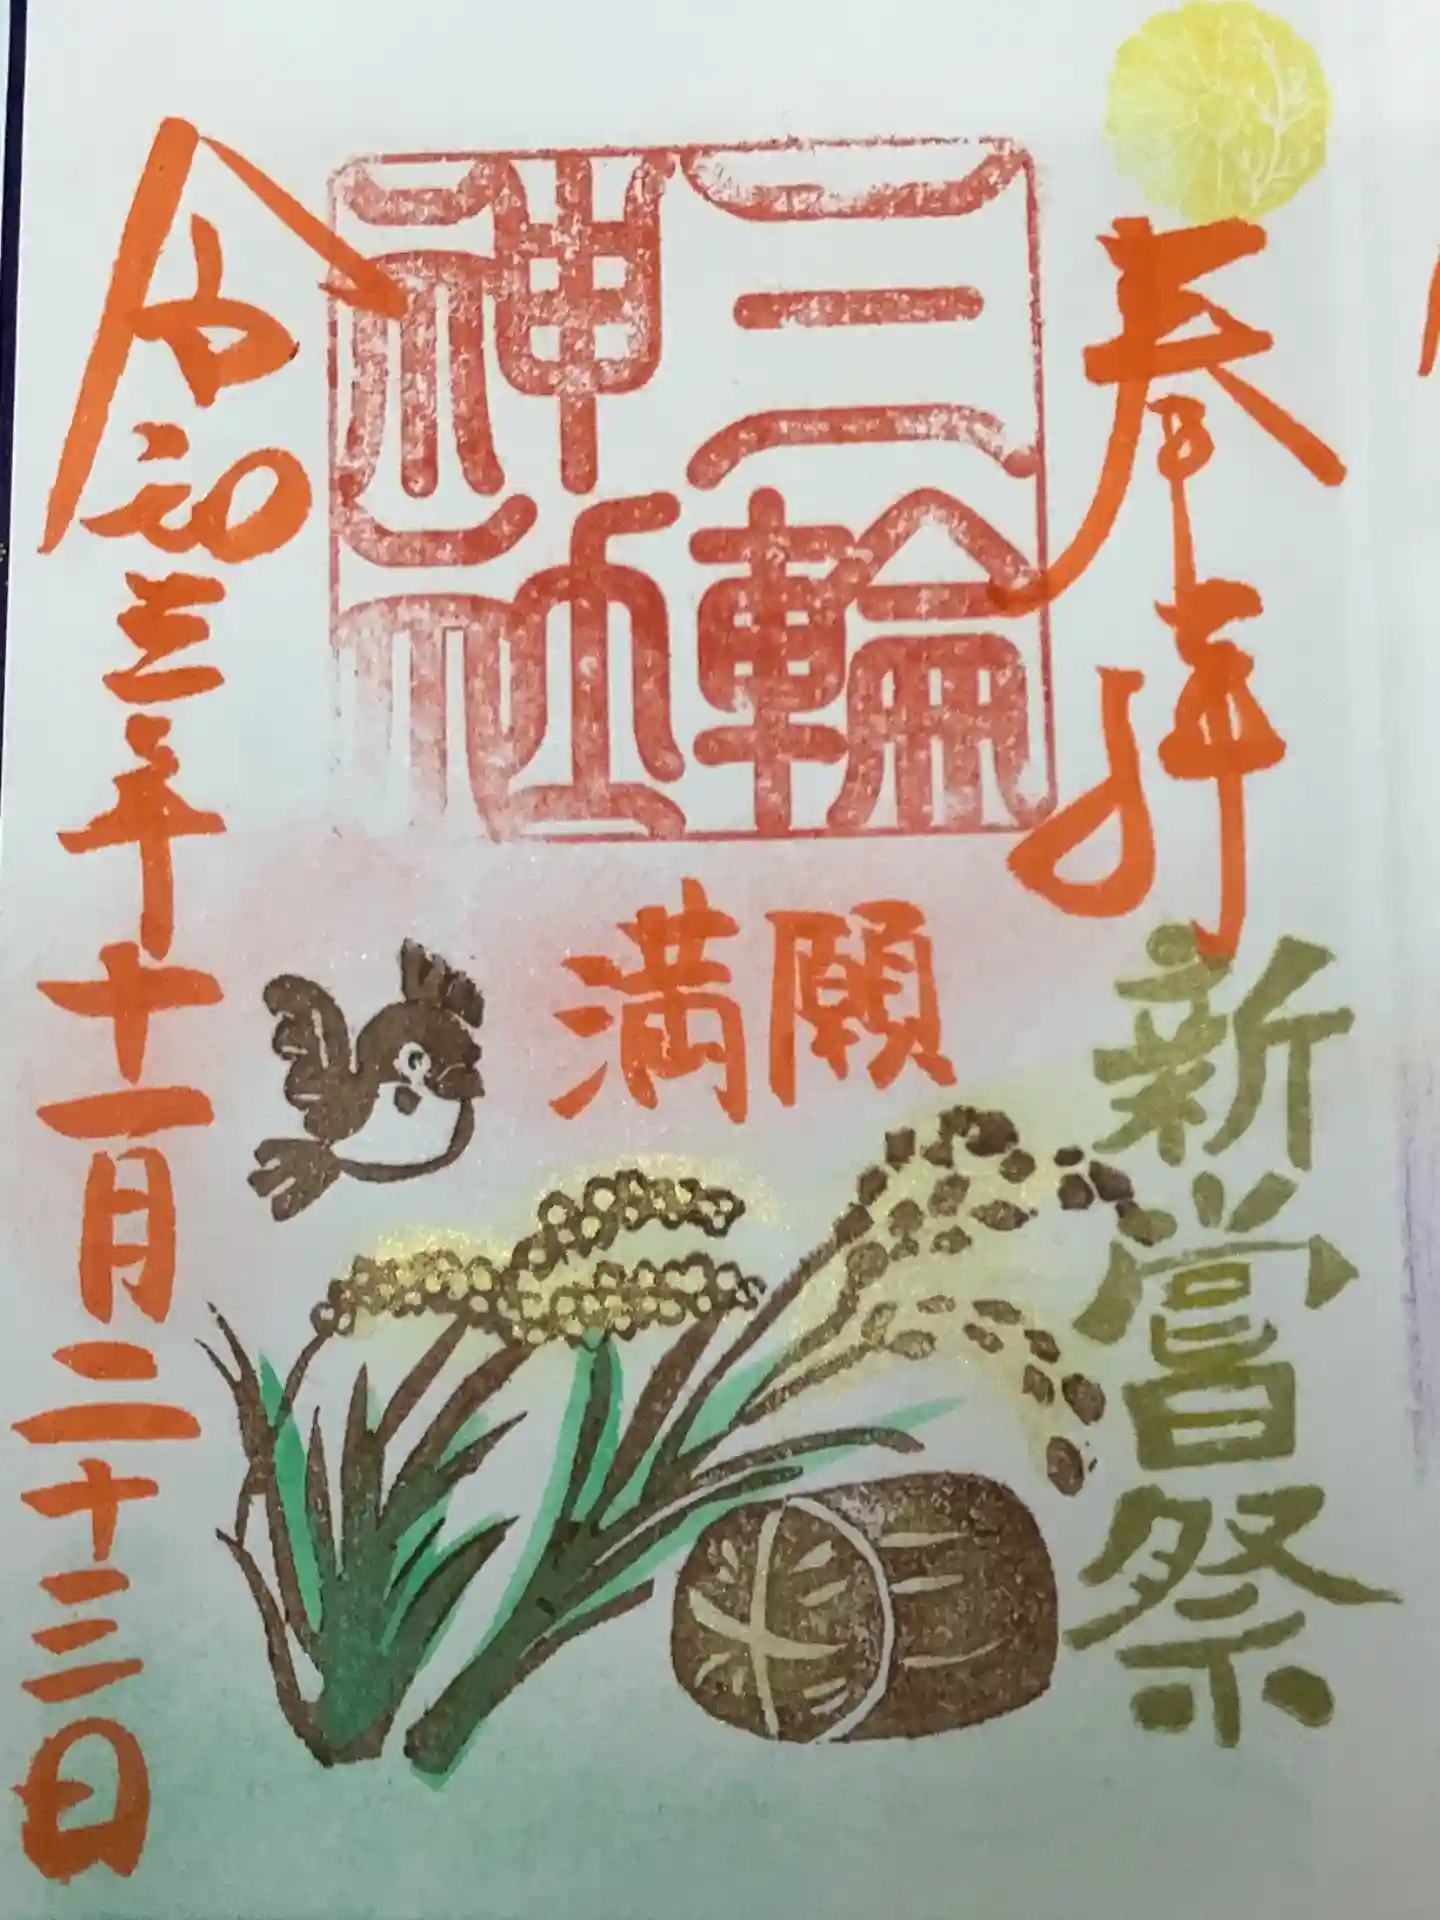 奉拝
新嘗祭
三輪
神社
満願
令和三年十一月二十三日